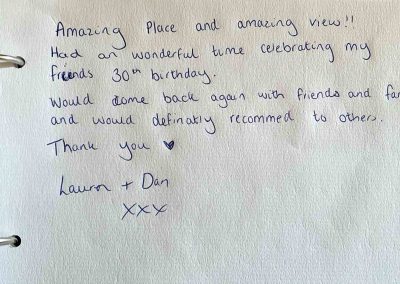 Amazing Place and amazing view!!
Had an wonderful time celebrating my
friends 30th birthday.
Would come back again with friends and fam
and would definatly recommed to others.
Thank you ♥
Lauren + Dan
xxx